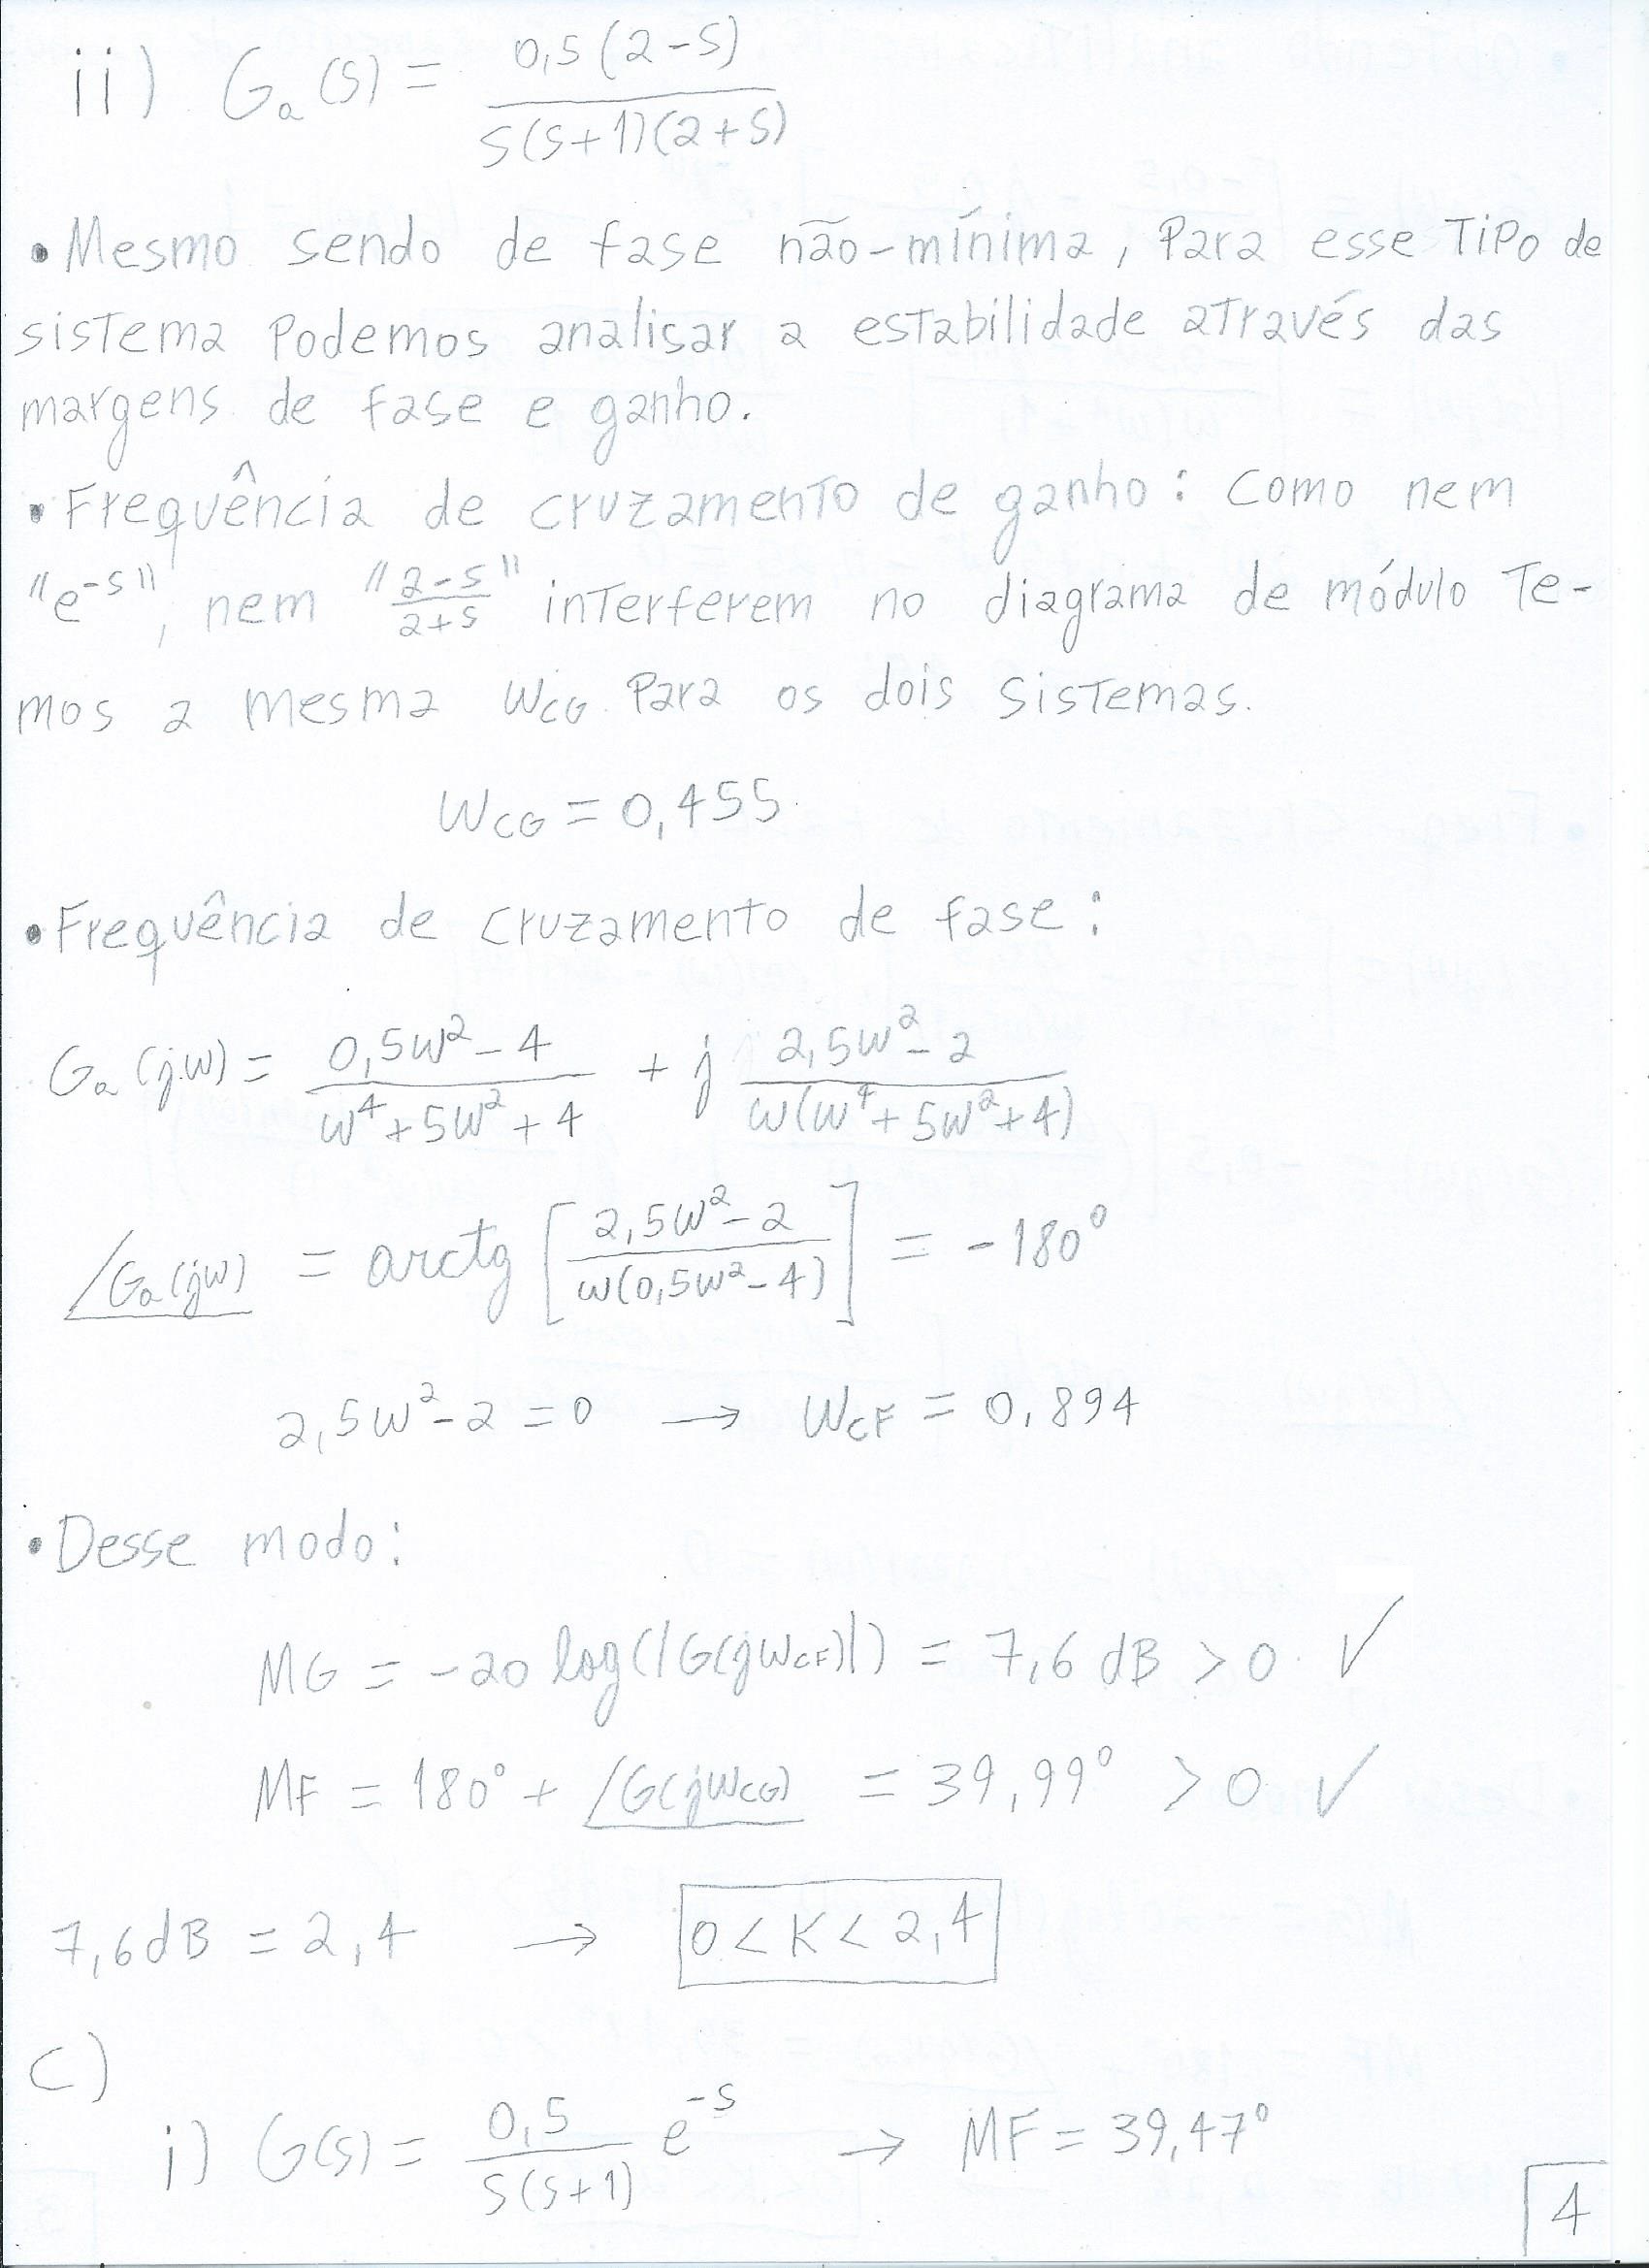 ii) Ga(s) = 0,5(2-s) / s(s+1)(2+s)
• Mesmo sendo de fase não-mínima, para esse tipo de
sistema podemos analisar a estabilidade através das
margens de fase e ganho.
• Frequência de cruzamento de ganho: Como nem
"e^-s", nem "2-s / 2+s" interferem no diagrama de módulo te-
mos a mesma WCG para os dois sistemas.
WCG = 0,455
• Frequência de cruzamento de fase:
Ga(jw) = 0,5w² - 4 / w⁴ + 5w² + 4 + j 2,5w² - 2 / w(w⁴ + 5w² + 4)
∠Ga(jw) = arctg [ 2,5w² - 2 / w(0,5w² - 4) ] = -180°
2,5w² - 2 = 0 → WCF = 0,894
• Desse modo:
MG = -20 log(|G(jWCF)|) = 7,6 dB > 0 ✓
MF = 180° + ∠G(jWCG) = 39,99° > 0 ✓
7,6dB = 2,4 → 0 < K < 2,4
C)
i) G(s) = 0,5 / s(s+1) e^-s → MF = 39,47°
4